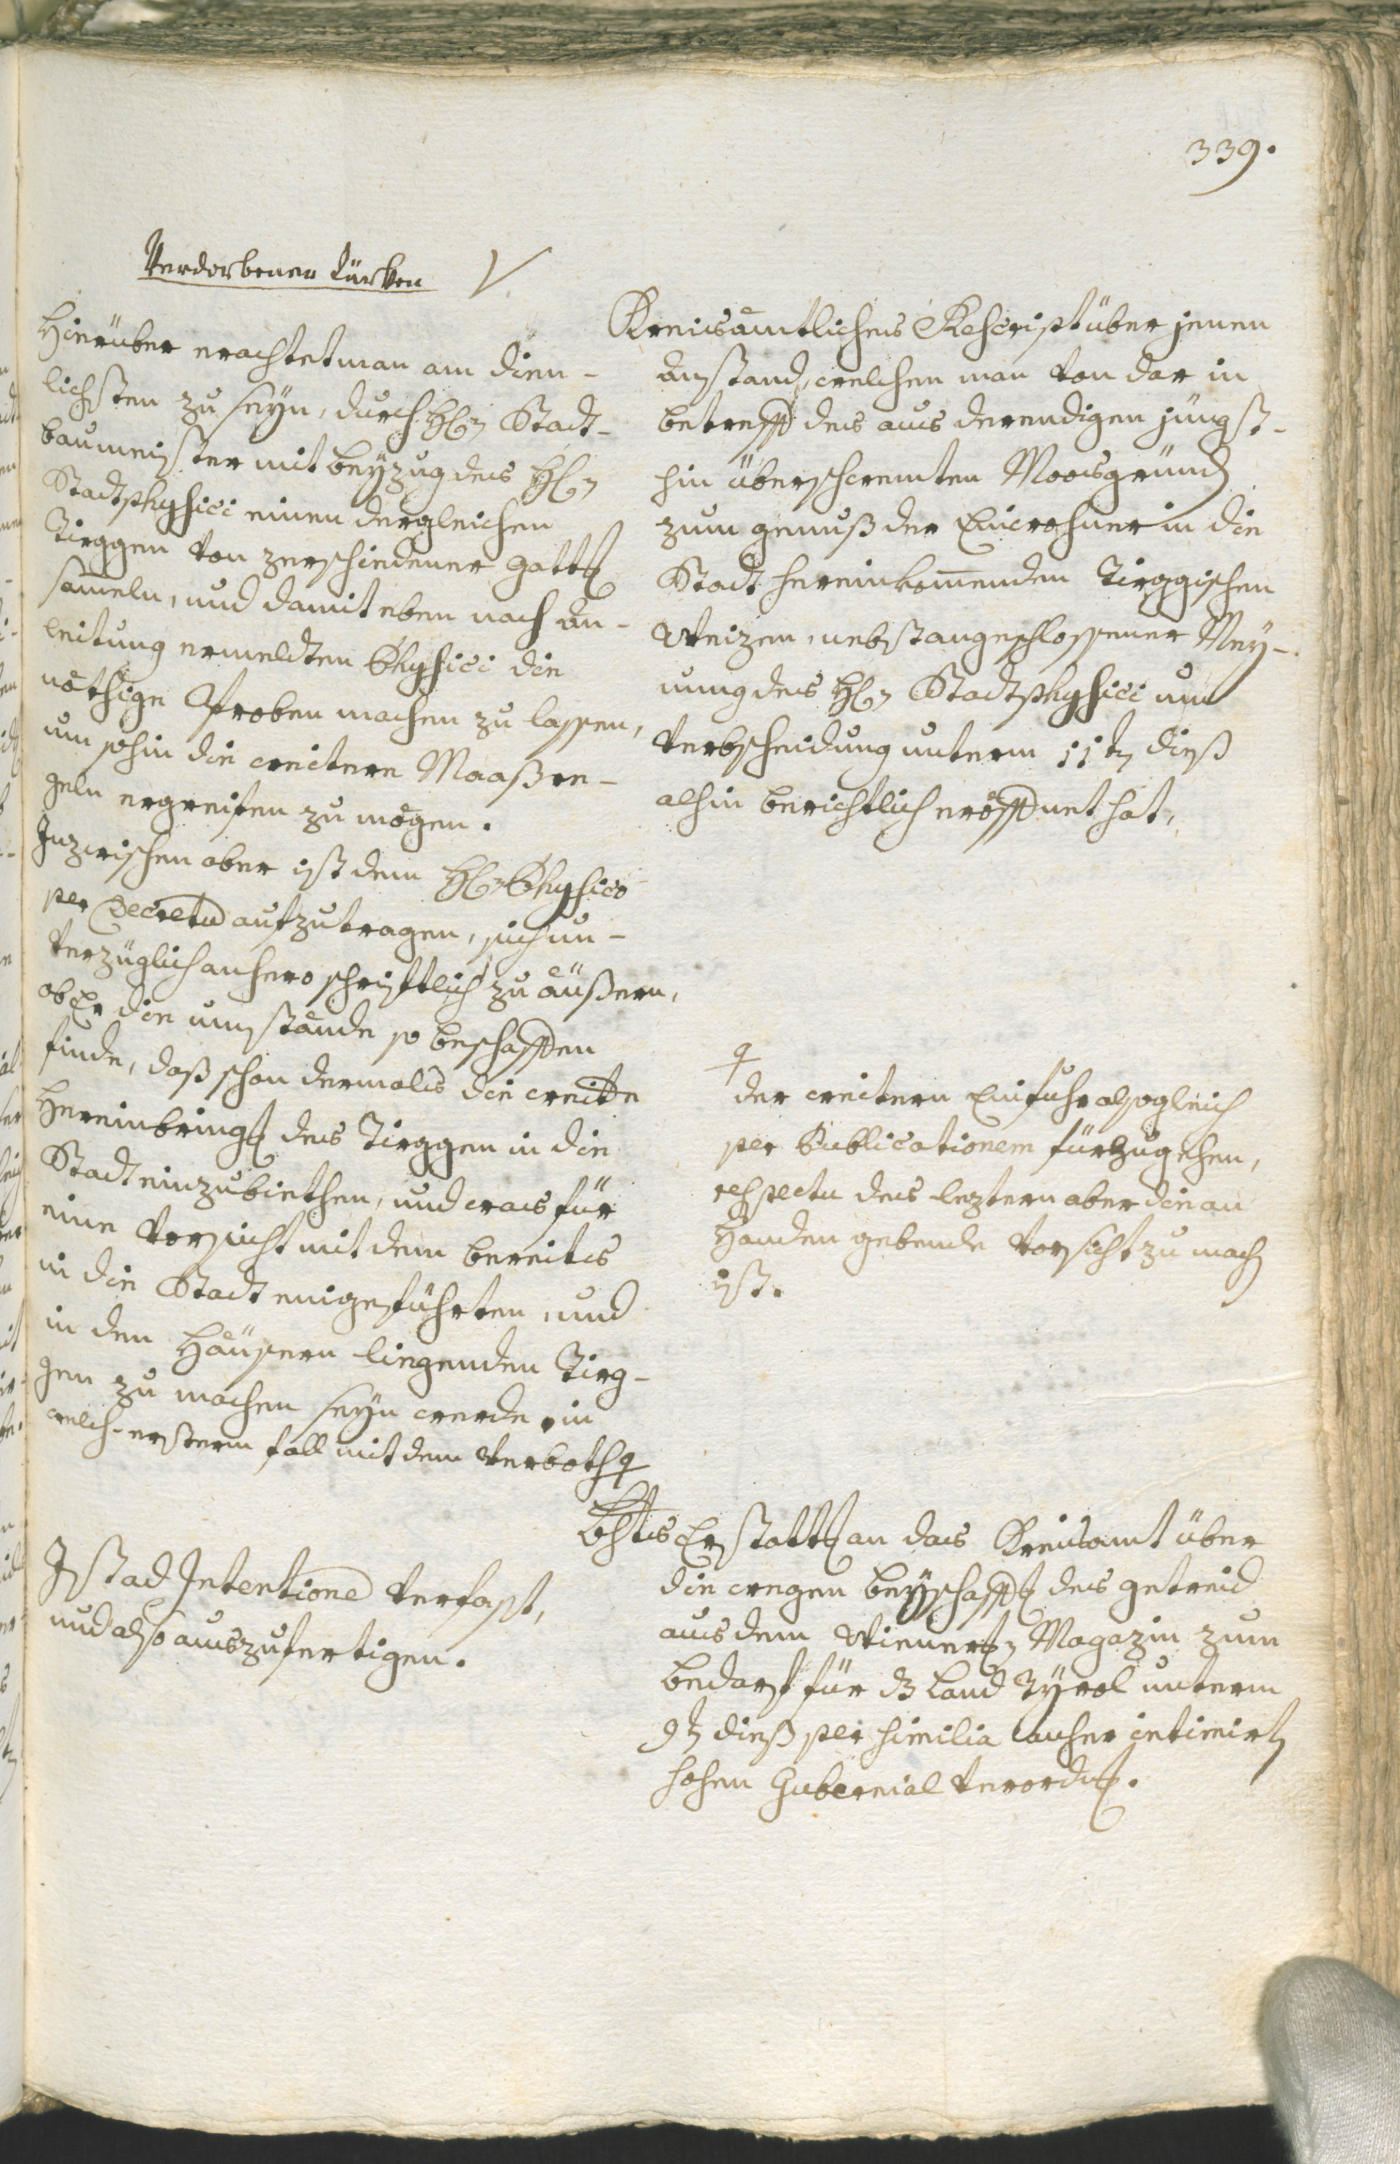 339.
Verdorbener Türken
Hierüber erachtet man am dien-
lichsten zu seyn, durch H. Stadt-
baumeister mit beyzug des H.
Stadtphysici einen dergleichen
Tirggen von zerschiedener Gattg
sam̄eln, und damit eben nach An-
leitung ermeldten Physici die
nöthige Proben machen zu lassen,
um sohin die weitere Maaßre-
geln ergreifen zu mögen.
Inzwischen aber ist dem H. Physico
per Decretu aufzutragen, sich un-
verzüglich anhero schriftlich zu äußern,
ob Er die umstände so beschaffen
finde, daß schon dermals die weitere
Hereinbringg des Tirggen in die
Stadt einzubiethen, und was für
eine Vorsicht mit dem bereits
in die Stadt eingeführten, und
in den Häusern liegenden Tirg-
gen zu machen seyn werde, in
welch-ersterm fall mit dem Verboth
Kreisämtliches Rescript über jenen
Anstand, welchen man von dar in
betreff des aus derendigen jüngst-
hin überschwemten Moosgründ
zum genuß der Einwohner in die
Stadt hereinkom̄enden Tirggischen
Weizen, nebst angeschlossener Mey-
nung des H. Stadtphysici um
Verbscheidung unterm 11t dieß
alhin berichtlich eröffnet hat,
der weitern Einfuhr alsogleich
per Publicationem fürzugehen,
respectu des leztern aber die an
Handen gebende Vorsicht zu mach
ist.
Ist ad Intentione verfasst,
und also auszufertigen.
Bhts Erstattg an das Kreisamt über
die wegen beyschaffg des getreid
aus dem Wiener Magazin zum
bedarf für dz Land Tyrol unterm
9t dieß per similia anher intimirt
hohen Gubernial Verordg.